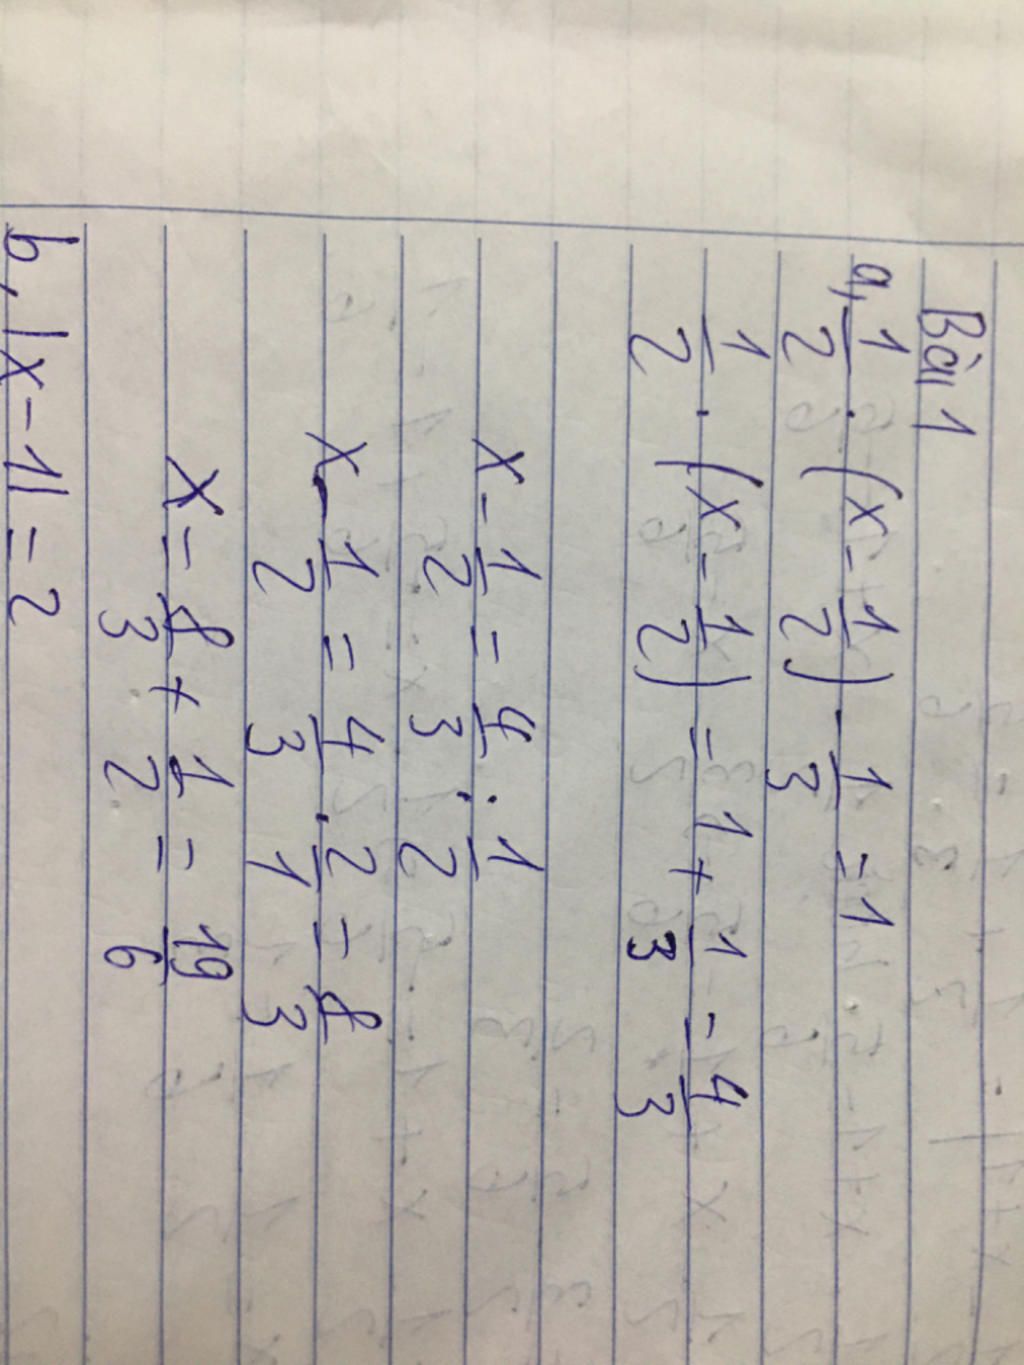 Bài 1
a, 1/2 . (x - 1/2) - 1/3 = 1
1/2 . (x - 1/2) = 1 + 1/3 = 4/3
x - 1/2 = 4/3 : 1/2
x - 1/2 = 4/3 . 2/1 = 8/3
x = 8/3 + 1/2 = 19/6
b, |x - 1| = 2